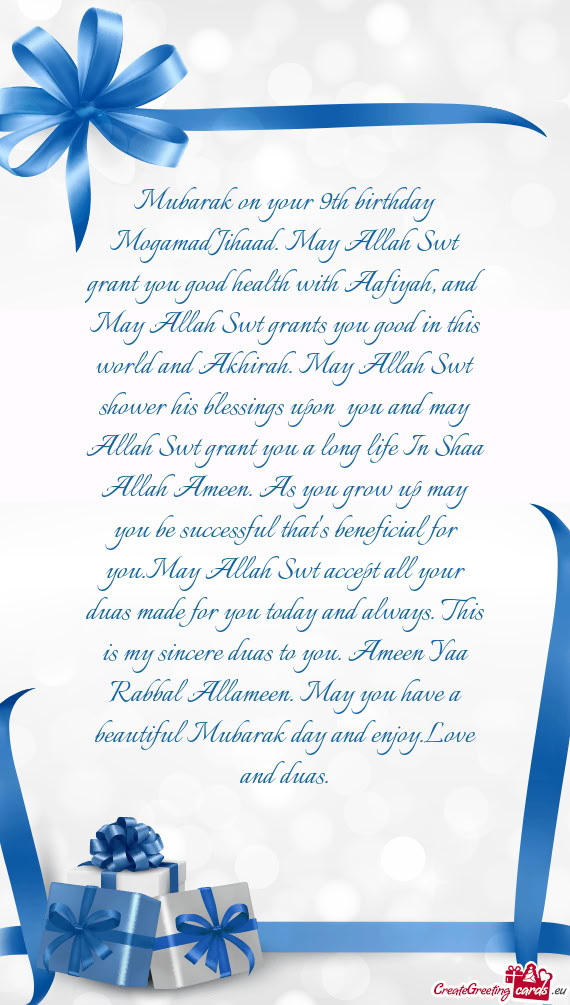 Mubarak on your 9th birthday
Mogamad Jihaad. May Allah Swt
grant you good health with Aafiyah, and
May Allah Swt grants you good in this
world and Akhirah. May Allah Swt
shower his blessings upon  you and may
Allah Swt grant you a long life In Shaa
Allah Ameen. As you grow up may
you be successful that's beneficial for
you.May Allah Swt accept all your
duas made for you today and always. This
is my sincere duas to you. Ameen Yaa
Rabbal Allameen. May you have a
beautiful Mubarak day and enjoy.Love
and duas.
CreateGreeting cards .eu